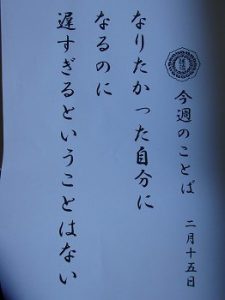 今週のことば　二月十五日
なりたかった自分に
なるのに
遅すぎるということはない